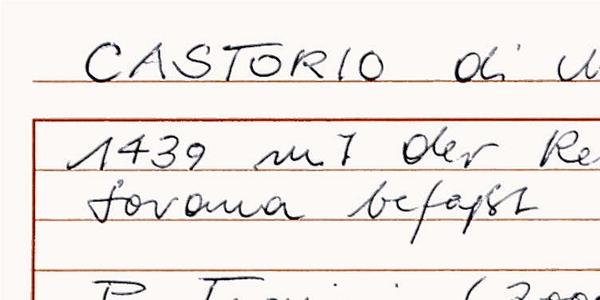 CASTORIO di
1439 mit der Re
tovana befaßt
P.